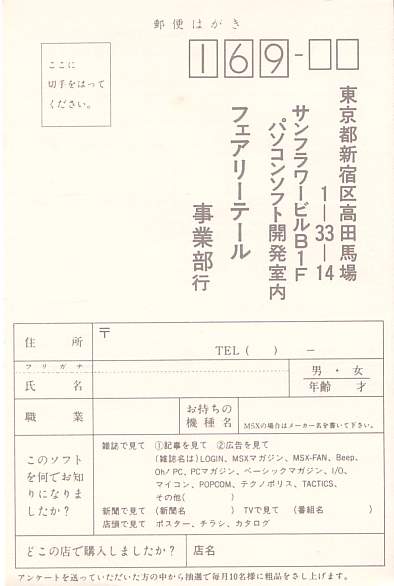 郵便はがき
ここに
切手をはって
ください。
169-
東京都新宿区高田馬場
1―33―14
サンフラワービルB1F
パソコンソフト開発室内
フェアリーテール
事業部行
住所
〒
TEL ( ) −
フリガナ
氏名
男・女
年齢 才
職業
お持ちの
機種名
MSXの場合はメーカー名を書いて下さい。
このソフト
を何でお知
りになりま
したか？
雑誌で見て ①記事を見て ②広告を見て
(雑誌名は)LOGIN、MSXマガジン、MSX-FAN、Beep、
Oh! PC、PCマガジン、ベーシックマガジン、I/O、
マイコン、POPCOM、テクノポリス、TACTICS、
その他( )
新聞で見て (新聞名 ) TVで見て (番組名 )
店頭で見て ポスター、チラシ、カタログ
どこの店で購入しましたか？
店名
アンケートを送っていただいた方の中から抽選で毎月10名様に粗品をさし上げます。